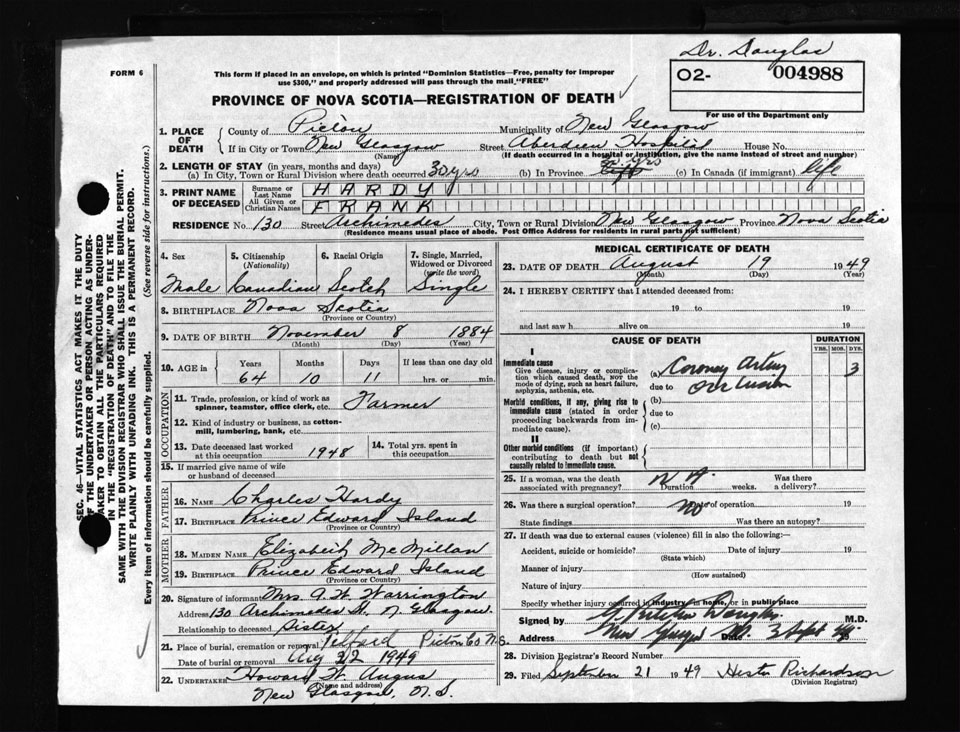 Dr. Douglas
FORM 6
This form if placed in an envelope, on which is printed "Dominion Statistics—Free, penalty for improper
use $300," and properly addressed will pass through the mail "FREE"
O2- 004988
For use of the Department only
PROVINCE OF NOVA SCOTIA—REGISTRATION OF DEATH
1. PLACE OF DEATH County of Pictou Municipality of New Glasgow
If in City or Town New Glasgow Street Aberdeen Hospital House No.
(Name) (If death occurred in a hospital or institution, give the name instead of street and number)
2. LENGTH OF STAY (in years, months and days)
(a) In City, Town or Rural Division where death occurred 30 yrs (b) In Province yrs (c) In Canada (if immigrant) life
3. PRINT NAME OF DECEASED Surname or Last Name HARDY
All Given or Christian Names FRANK
RESIDENCE No. 130 Street Archimedes City, Town or Rural Division New Glasgow Province Nova Scotia
(Residence means usual place of abode. Post Office Address for residents in rural parts not sufficient)
4. Sex 5. Citizenship (Nationality) 6. Racial Origin 7. Single, Married, Widowed or Divorced (write the word)
Male Canadian Scotch Single
8. BIRTHPLACE Nova Scotia
(Province or Country)
9. DATE OF BIRTH November 8 1884
(Month) (Day) (Year)
10. AGE in Years Months Days If less than one day old
64 10 11 hrs. or min.
OCCUPATION
11. Trade, profession, or kind of work as spinner, teamster, office clerk, etc. Farmer
12. Kind of industry or business, as cotton-mill, lumbering, bank, etc.
13. Date deceased last worked at this occupation 1948 14. Total yrs. spent in this occupation
15. If married give name of wife or husband of deceased
FATHER
16. NAME Charles Hardy
17. BIRTHPLACE Prince Edward Island
(Province or Country)
MOTHER
18. MAIDEN NAME Elizabeth McMillan
19. BIRTHPLACE Prince Edward Island
(Province or Country)
20. Signature of informant Mrs. A. W. Warrington
Address 130 Archimedes St. N. Glasgow.
Relationship to deceased Sister
21. Place of burial, cremation or removal Telford Pictou Co N.S.
Date of burial or removal Aug 22 1949
22. UNDERTAKER Howard W. Angus
(Name and address)
New Glasgow, N. S.
MEDICAL CERTIFICATE OF DEATH
23. DATE OF DEATH August 19 1949
(Month) (Day) (Year)
24. I HEREBY CERTIFY that I attended deceased from:
19 to 19
and last saw h alive on 19
CAUSE OF DEATH DURATION
YRS. MOS. DYS.
I
Immediate cause
Give disease, injury or complication which caused death, NOT the mode of dying, such as heart failure, asphyxia, asthenia, etc.
(a) Coronary Artery 3
due to Occlusion
Morbid conditions, if any, giving rise to immediate cause (stated in order proceeding backwards from immediate cause).
(b)
due to
(c)
II
Other morbid conditions (if important) contributing to death but not causally related to immediate cause.
25. If a woman, was the death associated with pregnancy? N A. Duration weeks. Was there a delivery?
26. Was there a surgical operation? no of operation 19
State findings Was there an autopsy?
27. If death was due to external causes (violence) fill in also the following:—
Accident, suicide or homicide? Date of injury 19
(State which)
Manner of injury
(How sustained)
Nature of injury
Specify whether injury occurred in industry, in home, or in public place
Signed by Douglas M.D.
Address New Glasgow 3 Sept 49
28. Division Registrar's Record Number
29. Filed September 21 1949 Hester Richardson
(Division Registrar)
SEC. 46—VITAL STATISTICS ACT MAKES IT THE DUTY
OF THE UNDERTAKER OR PERSON ACTING AS UNDER-
TAKER TO OBTAIN ALL THE PARTICULARS REQUIRED
IN THE "REGISTRATION OF DEATH" AND TO FILE THE
SAME WITH THE DIVISION REGISTRAR WHO SHALL ISSUE THE BURIAL PERMIT.
WRITE PLAINLY WITH UNFADING INK. THIS IS A PERMANENT RECORD.
Every item of information should be carefully supplied. (See reverse side for instructions.)